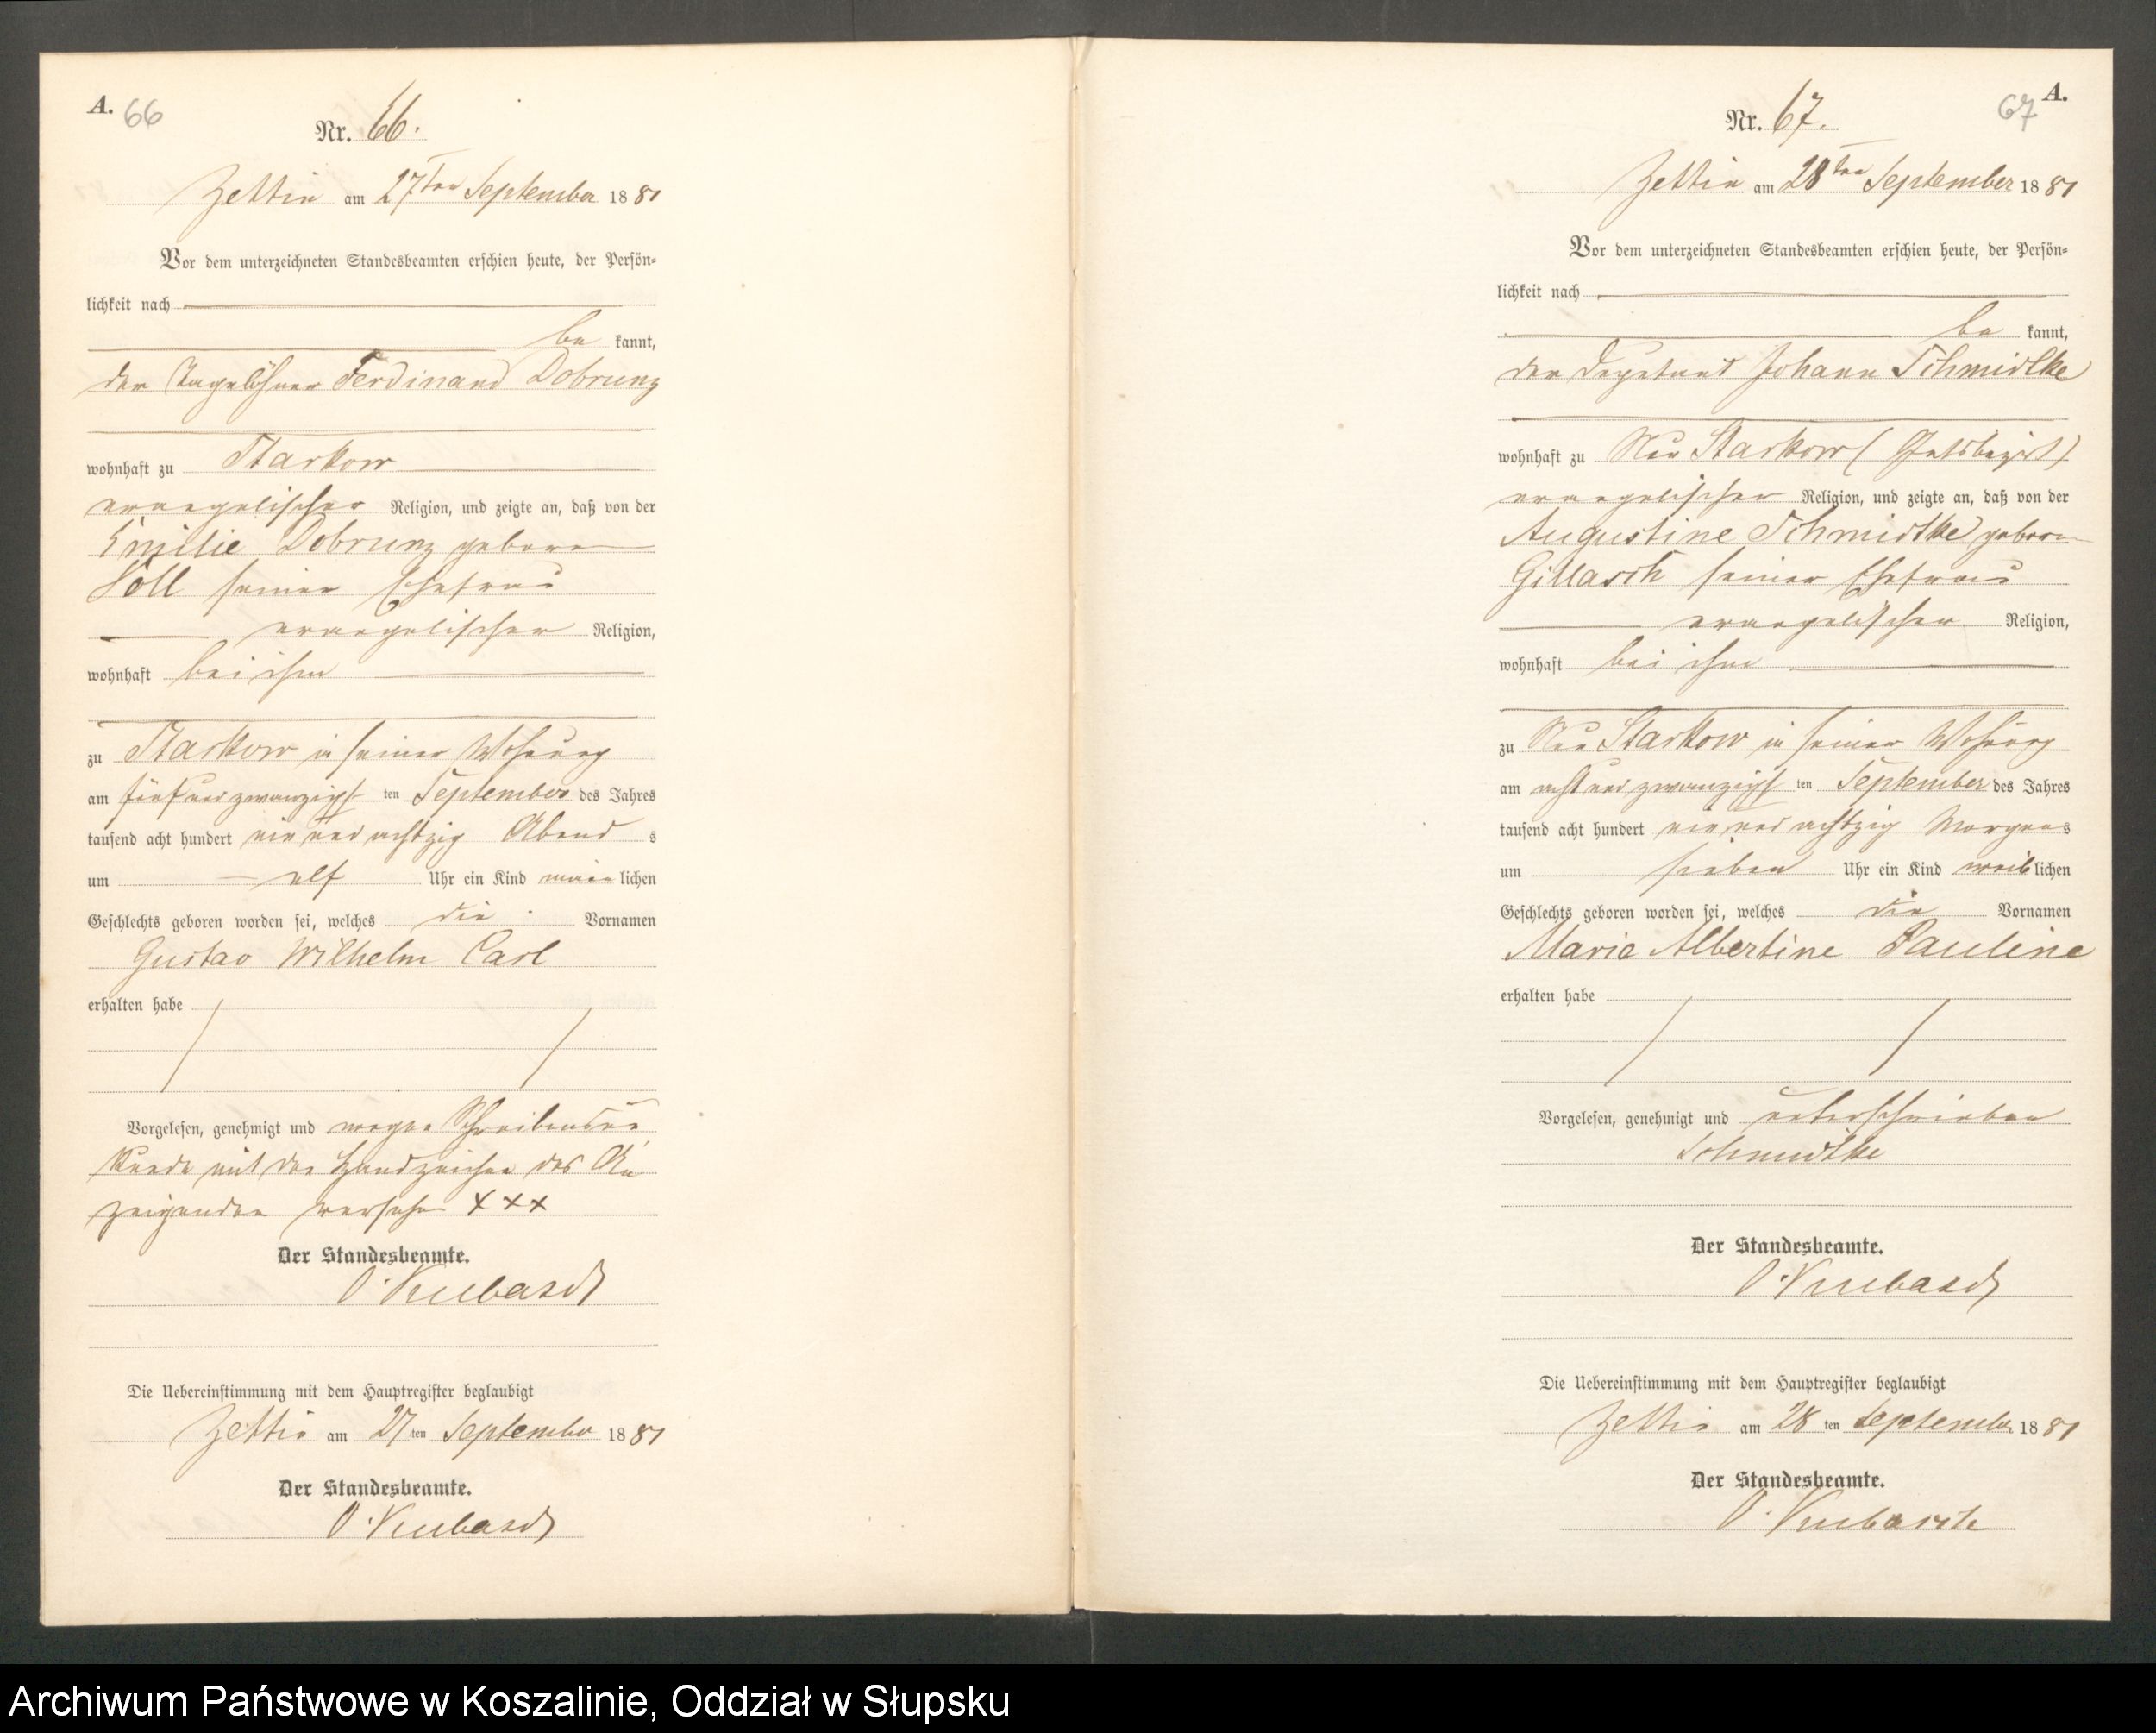 A. 66
Nr. 66.
Zettin am 27ten September 1881
Vor dem unterzeichneten Standesbeamten erschien heute, der Persön-
lichkeit nach
be kannt,
der Tagelöhner Ferdinand Dobrunz
wohnhaft zu Starkow
evangelischer Religion, und zeigte an, daß von der
Emilie Dobrunz geborene
Voll seiner Ehefrau
evangelischer Religion,
wohnhaft bei ihm
zu Starkow in seiner Wohnung
am fünf und zwanzigst ten September des Jahres
tausend acht hundert ein und achtzig Abend s
um elf Uhr ein Kind männ lichen
Geschlechts geboren worden sei, welches die Vornamen
Gustav Wilhelm Carl
erhalten habe
Vorgelesen, genehmigt und wegen Schreibensun
kunde mit dem Handzeichen des An
zeigenden versehen XXX
Der Standesbeamte.
O.
Die Uebereinstimmung mit dem Hauptregister beglaubigt
Zettin am 27ten September 1881
Der Standesbeamte.
O.
67 A.
Nr. 67.
Zettin am 28ten September 1881
Vor dem unterzeichneten Standesbeamten erschien heute, der Persön-
lichkeit nach
be kannt,
der Deputant Johann Schmidtke
wohnhaft zu Neu Starkow (Gutsbezirk)
evangelischer Religion, und zeigte an, daß von der
Augustine Schmidtke geboren
Gillasch seiner Ehefrau
evangelischer Religion,
wohnhaft bei ihm
zu Neu Starkow in seiner Wohnung
am acht und zwanzigst ten September des Jahres
tausend acht hundert ein und achtzig Morgens
um sieben Uhr ein Kind weib lichen
Geschlechts geboren worden sei, welches die Vornamen
Marie Albertine Pauline
erhalten habe
Vorgelesen, genehmigt und unterschrieben
Schmidtke
Der Standesbeamte.
O.
Die Uebereinstimmung mit dem Hauptregister beglaubigt
Zettin am 28 ten September 1881
Der Standesbeamte.
O.
Archiwum Państwowe w Koszalinie, Oddział w Słupsku